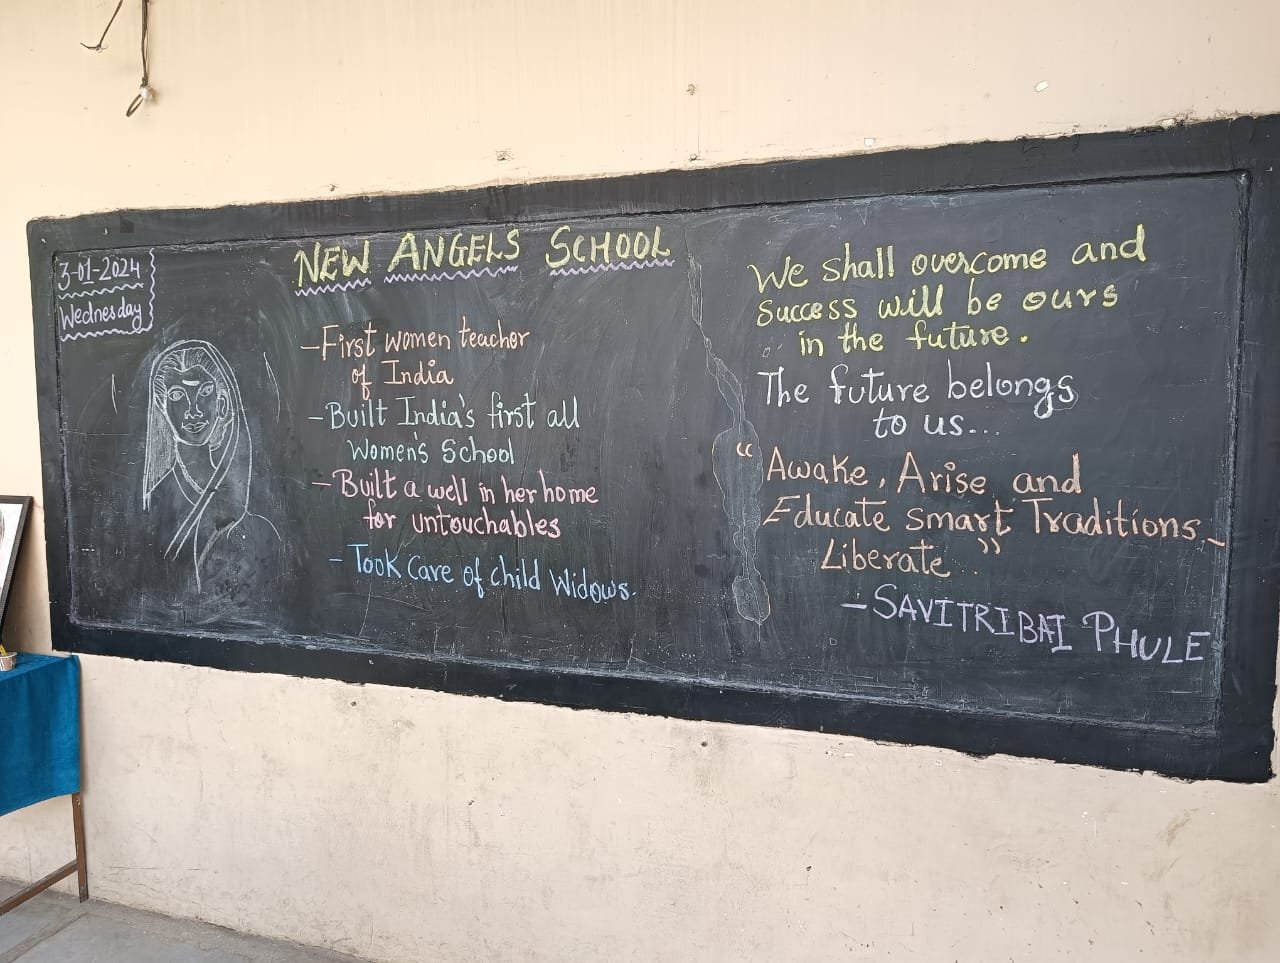 3-01-2024
Wednesday
NEW ANGELS SCHOOL
-First women teacher
of India
-Built India's first all
Women's School
-Built a well in her home
for untouchables
-Took Care of child Widows.
We shall overcome and
success will be ours
in the future.
The future belongs
to us...
"Awake, Arise and
Educate smart Traditions_
Liberate."
-SAVITRIBAI PHULE